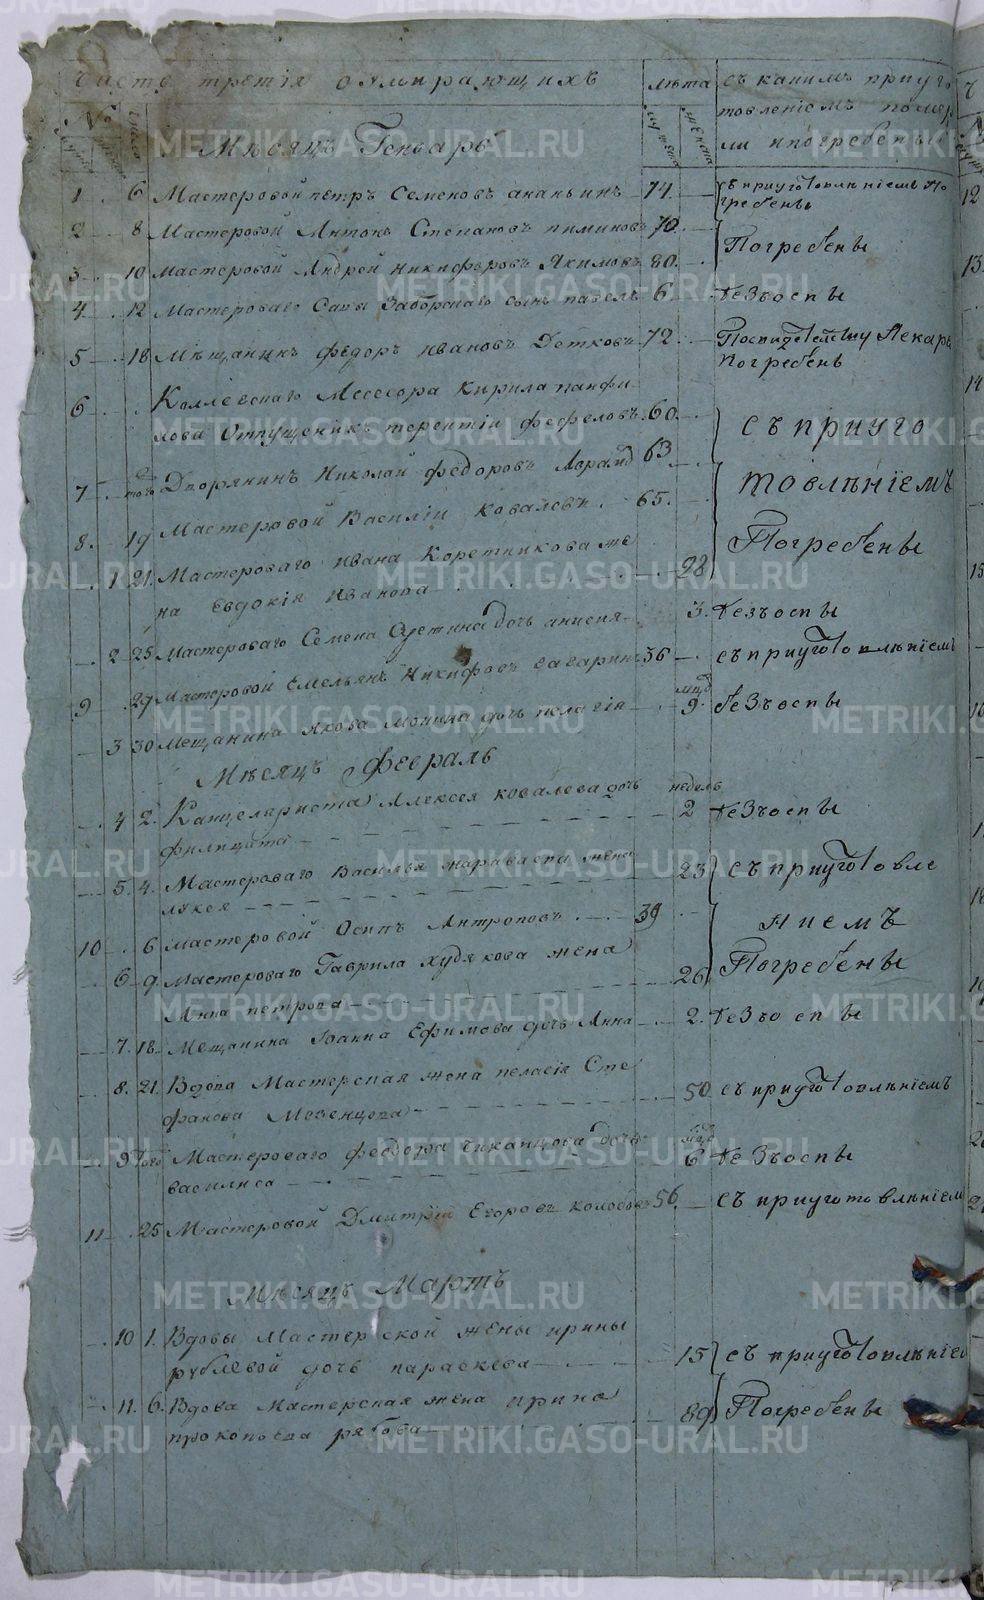 Часть третія о умирающихъ
лѣта
съ какимъ приуго
товленіемъ поме
ли ипогребены
№
числа
мужеска
женска
Мѣсяцъ Генварь
1 6 Мастеровой петръ Семеновъ ананьинъ 74. съ приуготовлѣніемъ По
гребенъ
2 8 Мастеровой Антонъ Степановъ пиминовъ 70.
Погребены
3 10 Мастеровой Андрей никифоровъ Якимовъ 80.
4 12 Мастероваго Савы Заборскаго сынъ павелъ 6. безъоспы
5 18 Мѣщанинъ федоръ ивановъ Детковъ 72 Посвидетелству Лекаря
Погребенъ
6 Коллевскаго Асессора Кирила панфи
лова Отпущеникъ терентіи фефеловъ 60. съ приуго
7 того Дворянинъ Николай федоровъ 63 товлѣніемъ
8. 19 Мастеровой Василіи Ковалевъ. 65.
Погребены
1 21. Мастероваго ивана Коретникова же
на Евдокія иванова 28
2 25 Мастероваго Семена дочь анисия 3. безъоспы
9 29 Мастеровой Емельянъ Никифовъ гагаринъ 36 съ приуготовлѣніемъ
мцъ
3 30 Мещанина Якова дочь пелагія 9. беЗъоспы
Мѣсяцъ Февраль
4 2. Канцеляриста Алексея ковалева дочь недель
филицата 2 беЗъоспы
5. 4. Мастероваго Василья жена 23 съ приуготовле
лукея
10 6 Мастеровой Осипъ Антроповъ 39 ніемъ
6 9 Мастероваго Гаврила худякова жена
Анна петрова 26 Погребены
7. 18. Мещанина Іоанна Ефимова дочь Анна 2. беЗъоспы
8. 21. Вдова Мастерская жена пелагія Сте
фанова Мезенцова 50 съ приуготовлѣніемъ
9 того Мастероваго феодора дочь мцъ
василиса 6 беЗъоспы
11 25 Мастеровой Дмитріи Егоровъ колобовъ 56. съ приуготовлѣніем
Мѣсяцъ Мартъ
10 1. Вдовы Мастерской жены ирины
рублевой дочь параскева 15 съ приуготовлѣніем
11. 6. Вдова Мастерская жена ирина
прокопьева рябова 89 Погребены
METRIKI.GASO-URAL.RU